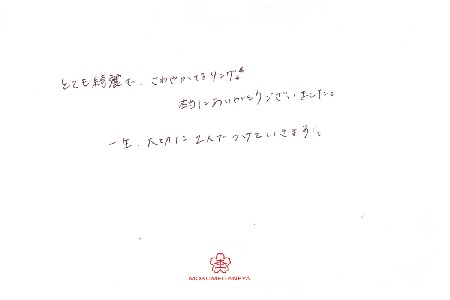 とても綺麗で、さわやかなリング。
本当にありがとうございました。
一生、大切に2人でつけていきます。
杢
MOKUMEGANEYA